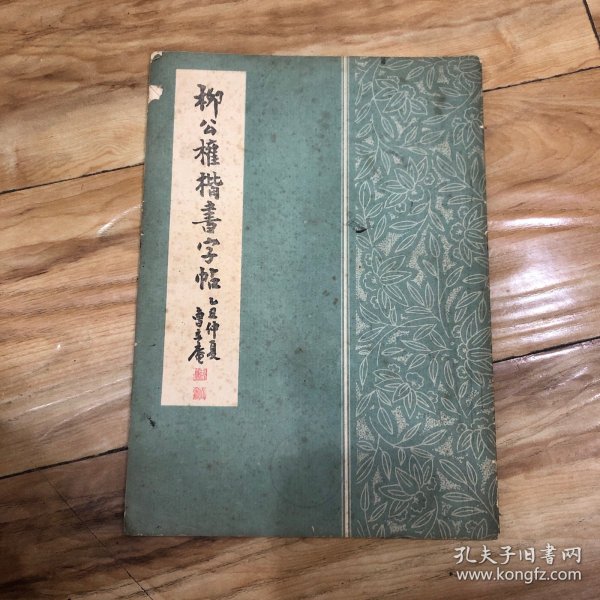 柳公權楷書字帖
乙丑仲夏
孔夫子旧书网
www.kongfz.com